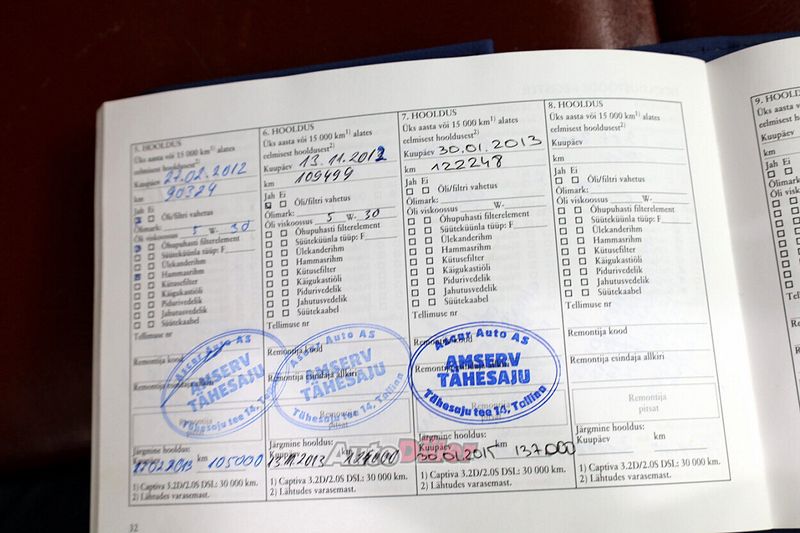 5. HOOLDUS
Üks aasta või 15 000 km1) alates
eelmisest hooldusest2)
Kuupäev 27.02.2012
km 90324
Jah Ei
Õli/filtri vahetus
Õlimark:
Õli viskoossus 5 W- 30
Õhupuhasti filterelement
Süüteküünla tüüp: F
Ülekanderihm
Hammasrihm
Kütusefilter
Käigukastiõli
Pidurivedelik
Jahutusvedelik
Süütekaabel
Tellimuse nr
Remontija kood
Remontija esindaja allkiri
Ascar Auto AS
AMSERV
TÄHESAJU
Tähesaju tee 14, Tallinn
Remontija
pitsat
Järgmine hooldus:
Kuupäev km
105000
1) Captiva 3.2D/2.0S DSL: 30 000 km.
2) Lähtudes varasemast.
32
6. HOOLDUS
Üks aasta või 15 000 km1) alates
eelmisest hooldusest2)
Kuupäev 13.11.2012
km 109499
Jah Ei
Õli/filtri vahetus
Õlimark:
Õli viskoossus 5 W- 30
Õhupuhasti filterelement
Süüteküünla tüüp: F
Ülekanderihm
Hammasrihm
Kütusefilter
Käigukastiõli
Pidurivedelik
Jahutusvedelik
Süütekaabel
Tellimuse nr
Remontija kood
Remontija esindaja allkiri
Ascar Auto AS
AMSERV
TÄHESAJU
Tähesaju tee 14, Tallinn
Remontija
pitsat
Järgmine hooldus:
Kuupäev km
13.11.2013
1) Captiva 3.2D/2.0S DSL: 30 000 km.
2) Lähtudes varasemast.
7. HOOLDUS
Üks aasta või 15 000 km1) alates
eelmisest hooldusest2)
Kuupäev 30.01.2013
km 122248
Jah Ei
Õli/filtri vahetus
Õlimark:
Õli viskoossus W-
Õhupuhasti filterelement
Süüteküünla tüüp: F
Ülekanderihm
Hammasrihm
Kütusefilter
Käigukastiõli
Pidurivedelik
Jahutusvedelik
Süütekaabel
Tellimuse nr
Remontija kood
Remontija esindaja allkiri
Ascar Auto AS
AMSERV
TÄHESAJU
Tähesaju tee 14, Tallinn
Järgmine hooldus:
Kuupäev km
137000
1) Captiva 3.2D/2.0S DSL: 30 000 km.
2) Lähtudes varasemast.
8. HOOLDUS
Üks aasta või 15 000 km1) alates
eelmisest hooldusest2)
Kuupäev
km
Jah Ei
Õli/filtri vahetus
Õlimark:
Õli viskoossus W-
Õhupuhasti filterelement
Süüteküünla tüüp: F
Ülekanderihm
Hammasrihm
Kütusefilter
Käigukastiõli
Pidurivedelik
Jahutusvedelik
Süütekaabel
Tellimuse nr
Remontija kood
Remontija esindaja allkiri
Remontija
pitsat
Järgmine hooldus:
Kuupäev km
1) Captiva 3.2D/2.0S DSL: 30 000 km.
2) Lähtudes varasemast.
9. HOOLDUS
Üks aasta
eelmisest
Kuupäev
km
Jah Ei
Õlimark:
Õli visko
Tellimus
Remont
Remont
Järgmi
Kuupä
1) Cap
2) Läh